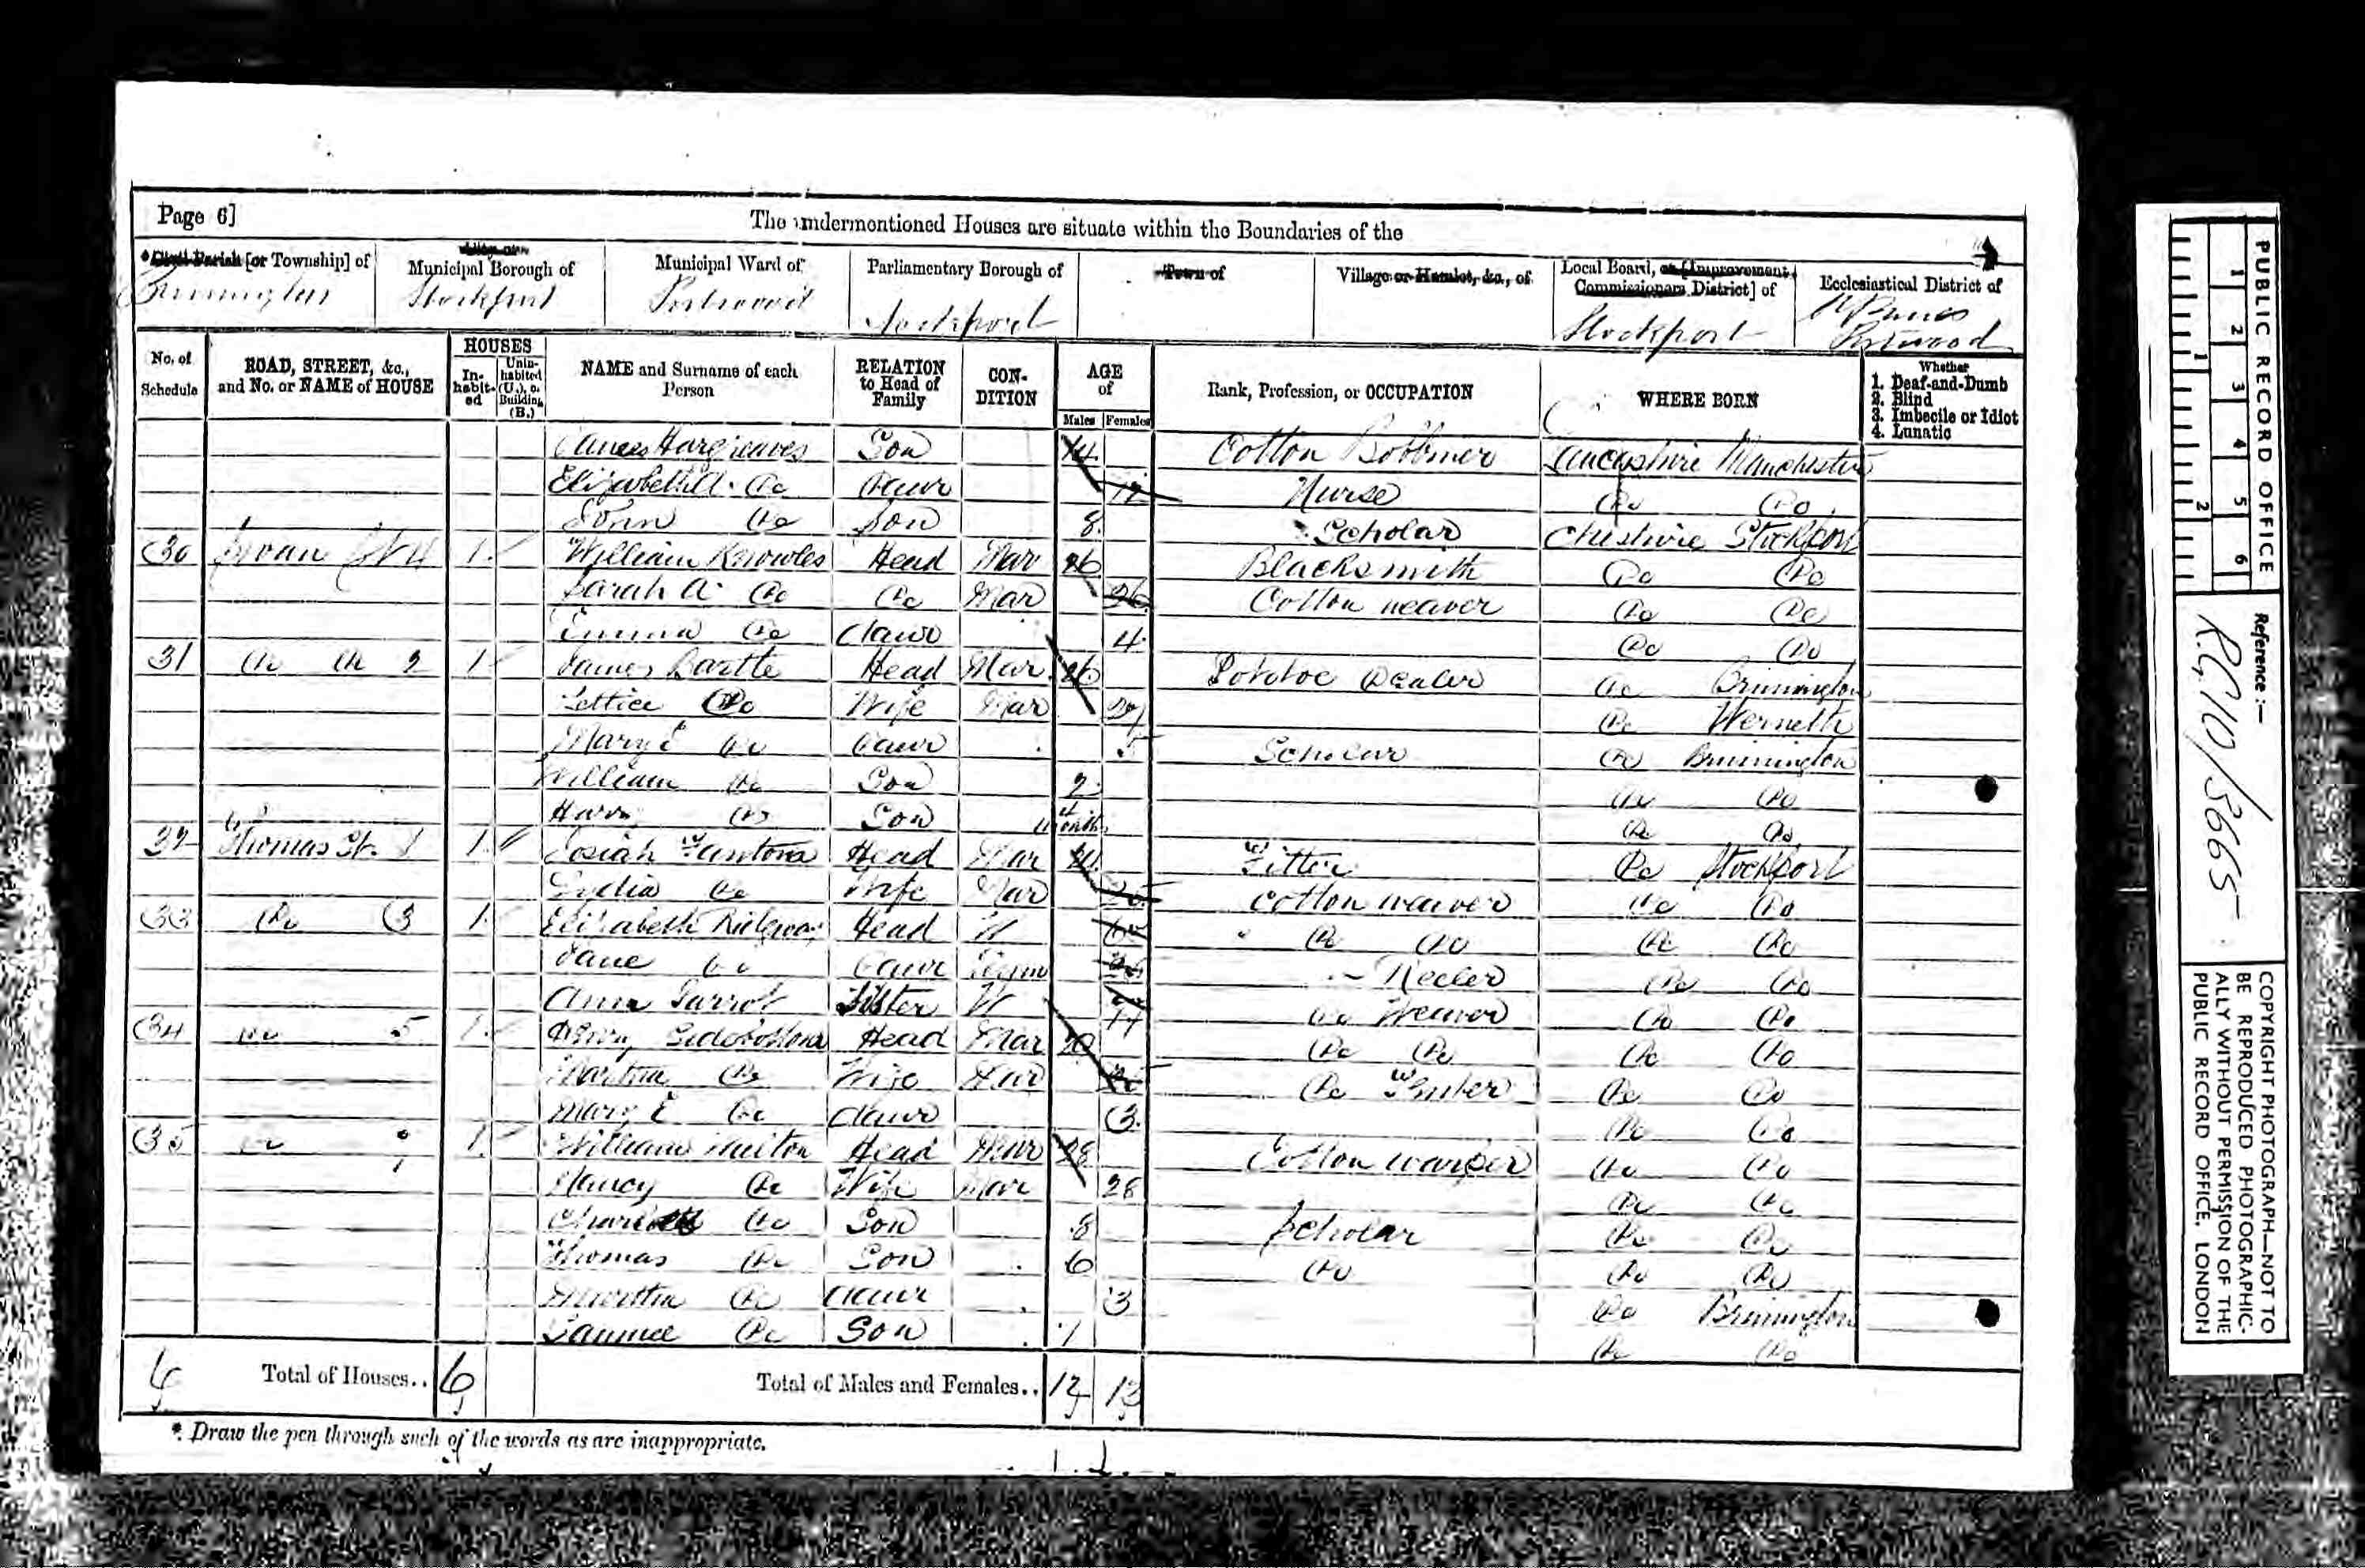 Page 6]
The undermentioned Houses are situate within the Boundaries of the
* Civil Parish [or Township] of
Brinnington
Municipal Borough of
Stockport
Municipal Ward of
Portwood
Parliamentary Borough of
Stockport
Town of
Village or Hamlet, &c., of
Local Board, or [Improvement Commissioners District] of
Stockport
Ecclesiastical District of
Portwood
No. of Schedule
ROAD, STREET, &c., and No. or NAME of HOUSE
HOUSES
In-habit-ed
Unin-habited (U.), or Building (B.)
NAME and Surname of each Person
RELATION to Head of Family
CON-DITION
AGE of
Males Females
Rank, Profession, or OCCUPATION
WHERE BORN
Whether
1. Deaf-and-Dumb
2. Blind
3. Imbecile or Idiot
4. Lunatic
James Hargreaves Son 14 Cotton Lancashire Manchester
Elizabeth A. Do Daur 12 Nurse Do Do
John Do Son 8 Scholar Cheshire Stockport
30 1 William Knowles Head Mar 26 Blacksmith Do Do
Sarah A Do Do Mar 26 Cotton weaver Do Do
Emma Do Daur 4 Do Do
31 Do Do 2 1 James Head Mar 26 Potatoe Dealer Do Brinnington
Lettice Do Wife Mar 27 Do Werneth
Mary E Do Daur 5 Scholar Do Brinnington
William Do Son 2 Do Do
Harry Do Son 4 months Do Do
32 Thomas St. 1 1 Josiah Head Mar Fitter Do Stockport
Lydia Do Wife Mar 25 Cotton weaver Do Do
33 Do 3 1 Elizabeth Ridgway Head W Do Do Do Do
Jane Do Daur Reeler Do Do
Ann Sister W Do Weaver Do Do
34 Do 5 1 Henry Head Mar 20 Do Do Do Do
Martha Do Wife Mar Do Do Do
Mary E Do Daur 3 Do Do
35 Do 1 William Head Mar 28 Cotton warper Do Do
Nancy Do Wife Mar 28 Do Do
Do Son 8 Scholar Do Do
Thomas Do Son 6 Do Do Do
Martha Do Daur 3 Do Brinnington
Samuel Do Son 1 Do Do
Total of Houses.. 6
Total of Males and Females.. 12 13
* Draw the pen through such of the words as are inappropriate.
PUBLIC RECORD OFFICE
1 2 3 4 5 6
1 2
Reference :—
R.G.10/3665
COPYRIGHT PHOTOGRAPH—NOT TO
BE REPRODUCED PHOTOGRAPHIC-
ALLY WITHOUT PERMISSION OF THE
PUBLIC RECORD OFFICE, LONDON